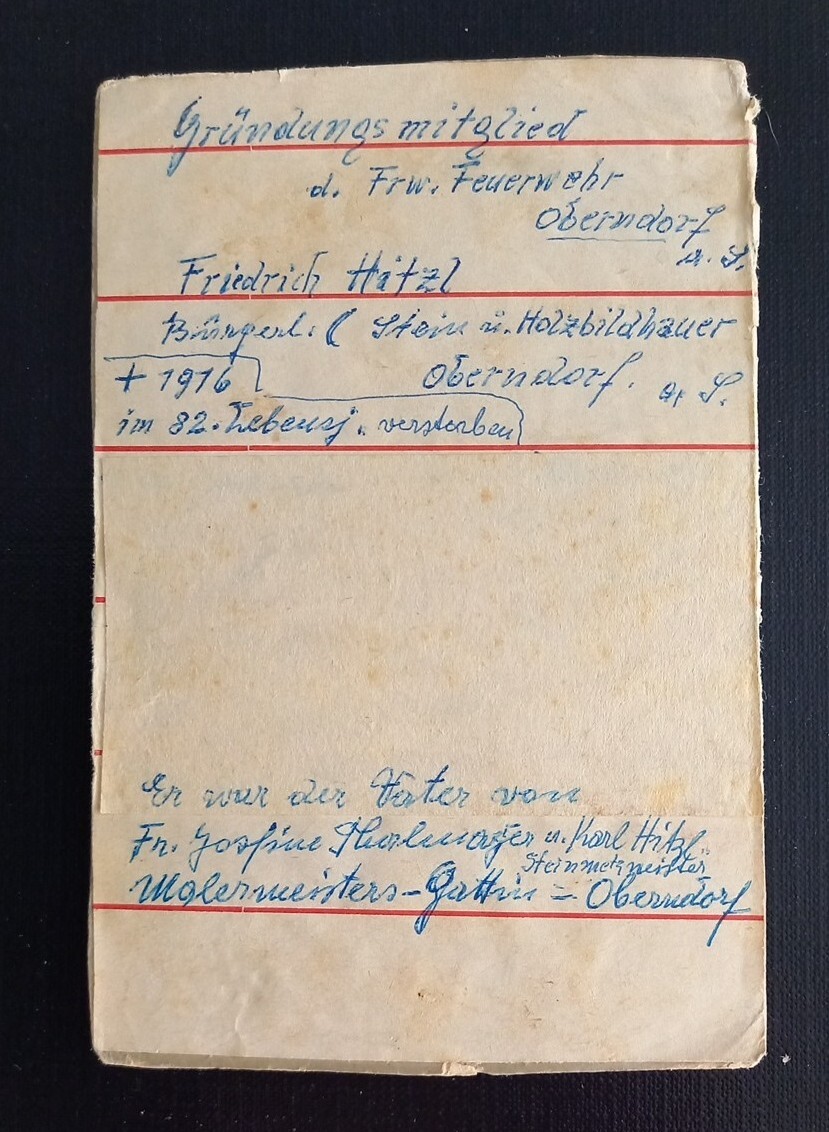 Gründungsmitglied
d. Frw. Feuerwehr
Oberndorf
a. S.
Friedrich Hitzl
Bürgerl. ( Stein u. Holzbildhauer
+ 1916 Oberndorf. a, S.
im 82. Lebensj. verstorben
Er war der Vater von
Fr. Josfine Thalmayer u. Karl Hitzl
Steinmetzmeister
Malermeisters-Gattin = Oberndorf